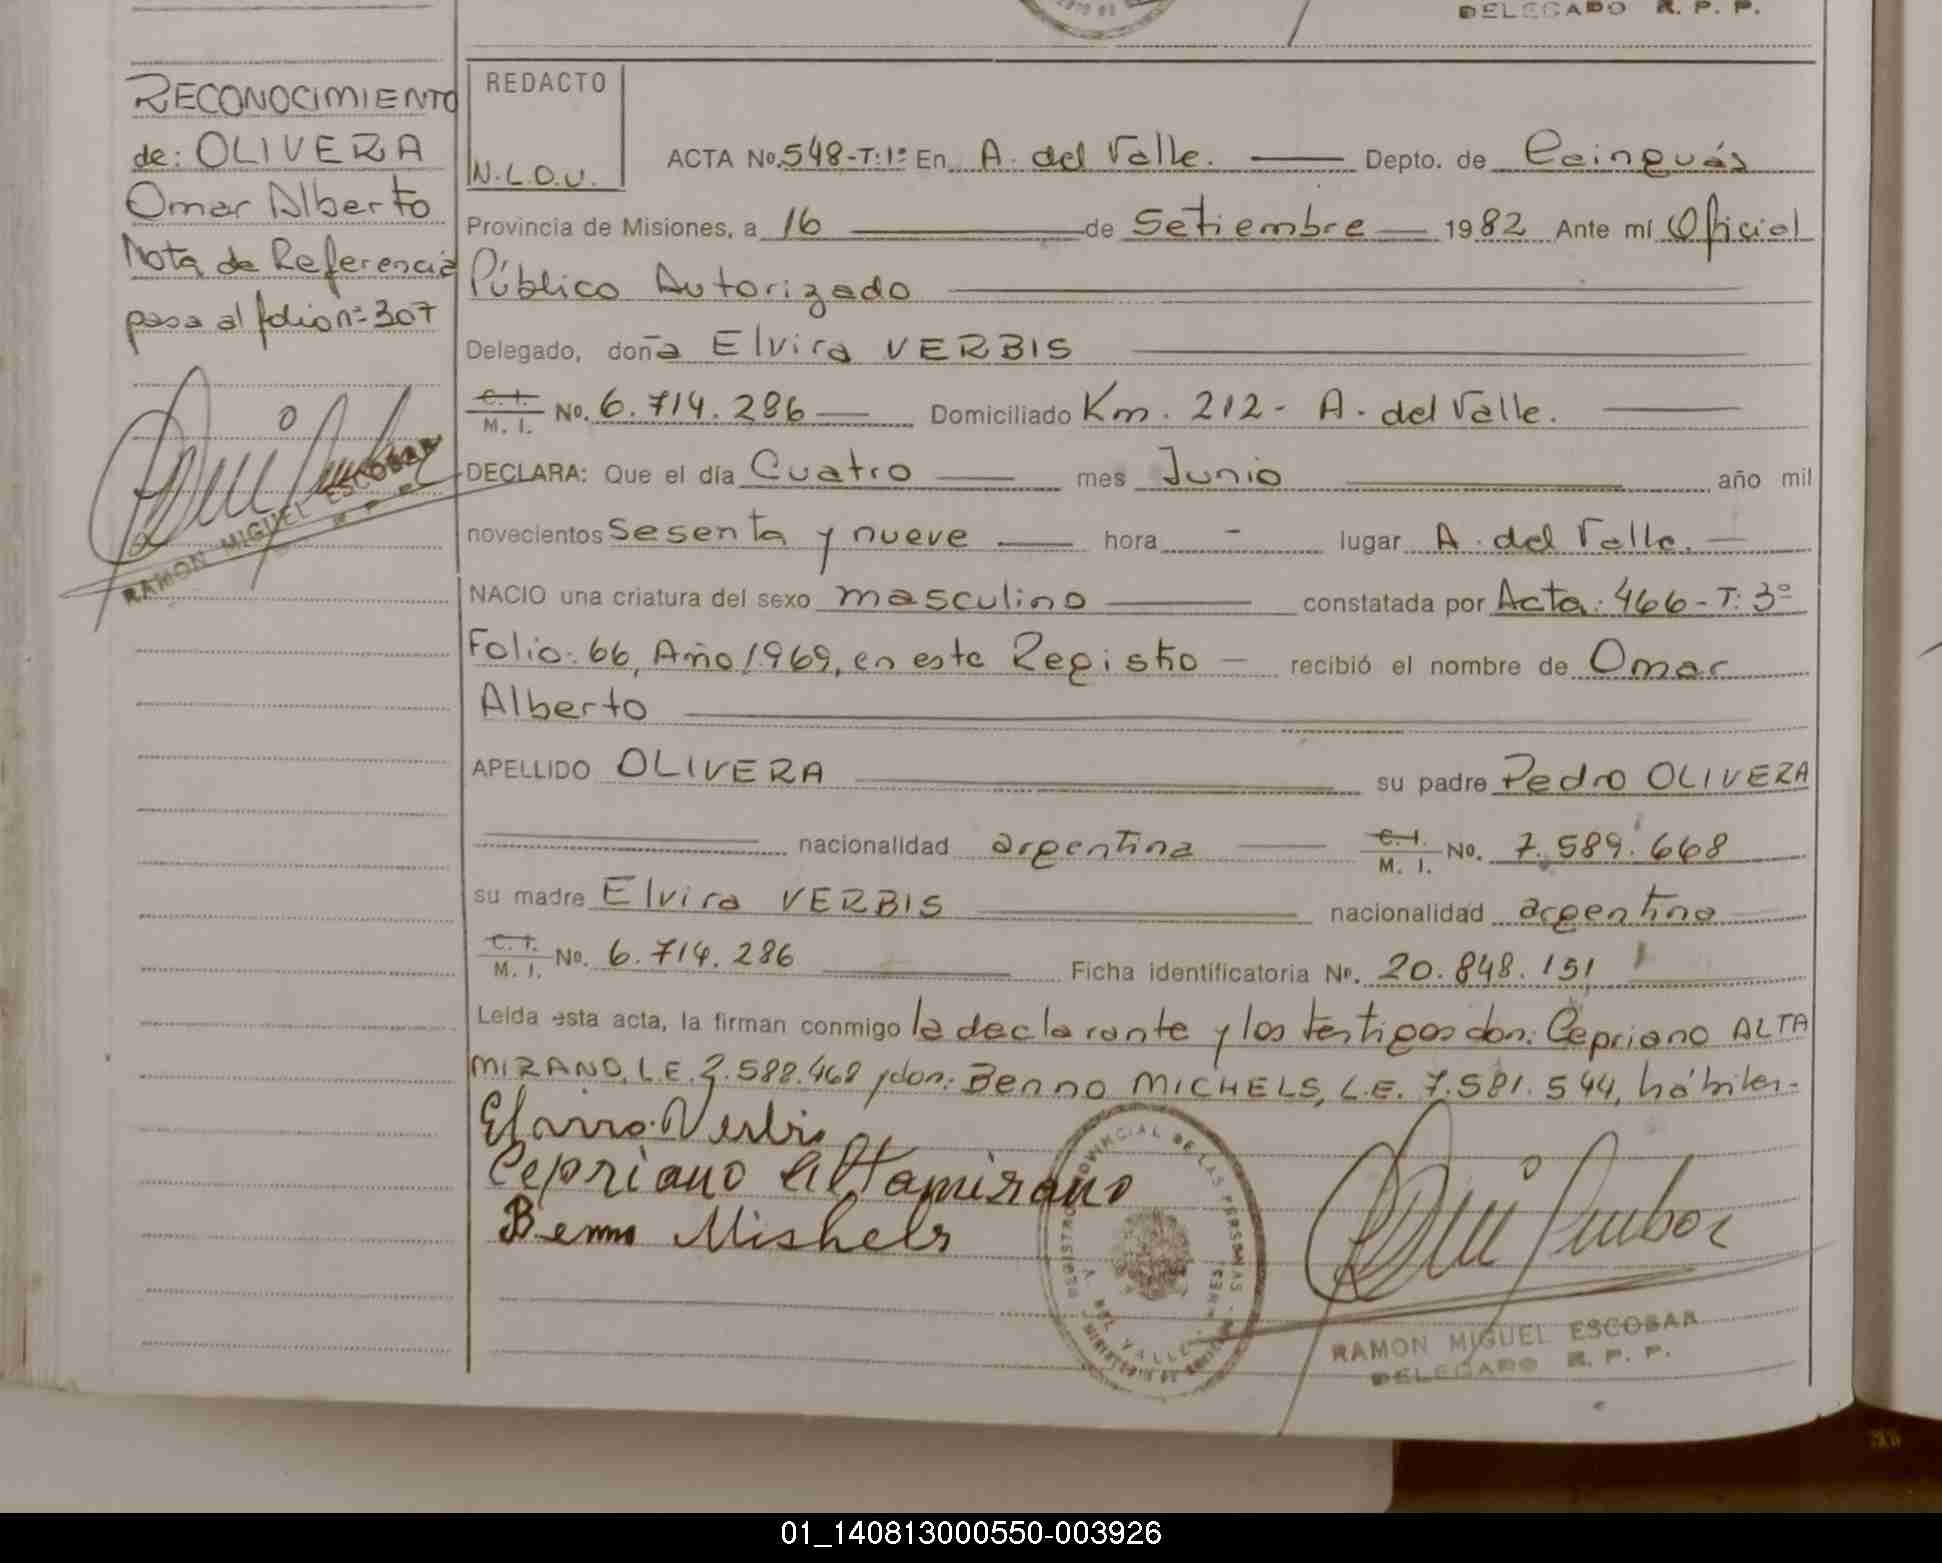 DELEGADO R. P. P.
RECONOCIMIENTO
de: OLIVERA
Omar Alberto
Nota de Referencia
pasa al folio nº 307
RAMON MIGUEL ESCOBAR
REDACTO
N.L.O.V.
ACTA No. 548-T:1º En A. del Valle. Depto. de Cainguás
Provincia de Misiones, a 16 de Setiembre 1982 Ante mí Oficial
Público Autorizado
Delegado, doña Elvira VERBIS
C.I. M. I. No. 6.714.286 Domiciliado Km. 212- A. del Valle.
DECLARA: Que el día Cuatro mes Junio año mil
novecientos Sesenta y nueve hora - lugar A. del Valle.
NACIO una criatura del sexo masculino constatada por Acta: 466-T: 3º
Folio: 66, Año 1.969, en este Registro recibió el nombre de Omar
Alberto
APELLIDO OLIVERA su padre Pedro OLIVERA
nacionalidad argentina C.I. M. I. No. 7.589.668
su madre Elvira VERBIS nacionalidad argentina
C.I. M. I. No. 6.714.286 Ficha identificatoria Nº. 20.848.151
Leída esta acta, la firman conmigo la declarante y los testigos don: Cepriano ALTA
MIRANO, L.E. 7.588.468 y don: Benno MICHELS, L.E. 7.581.544, hábiles.-
Elvira Verbis
Cepriano Altamirano
Benno Mishels
REGISTRO PROVINCIAL DE LAS PERSONAS
A. DEL VALLE
RAMON MIGUEL ESCOBAR
DELEGADO R. P. P.
01_140813000550-003926